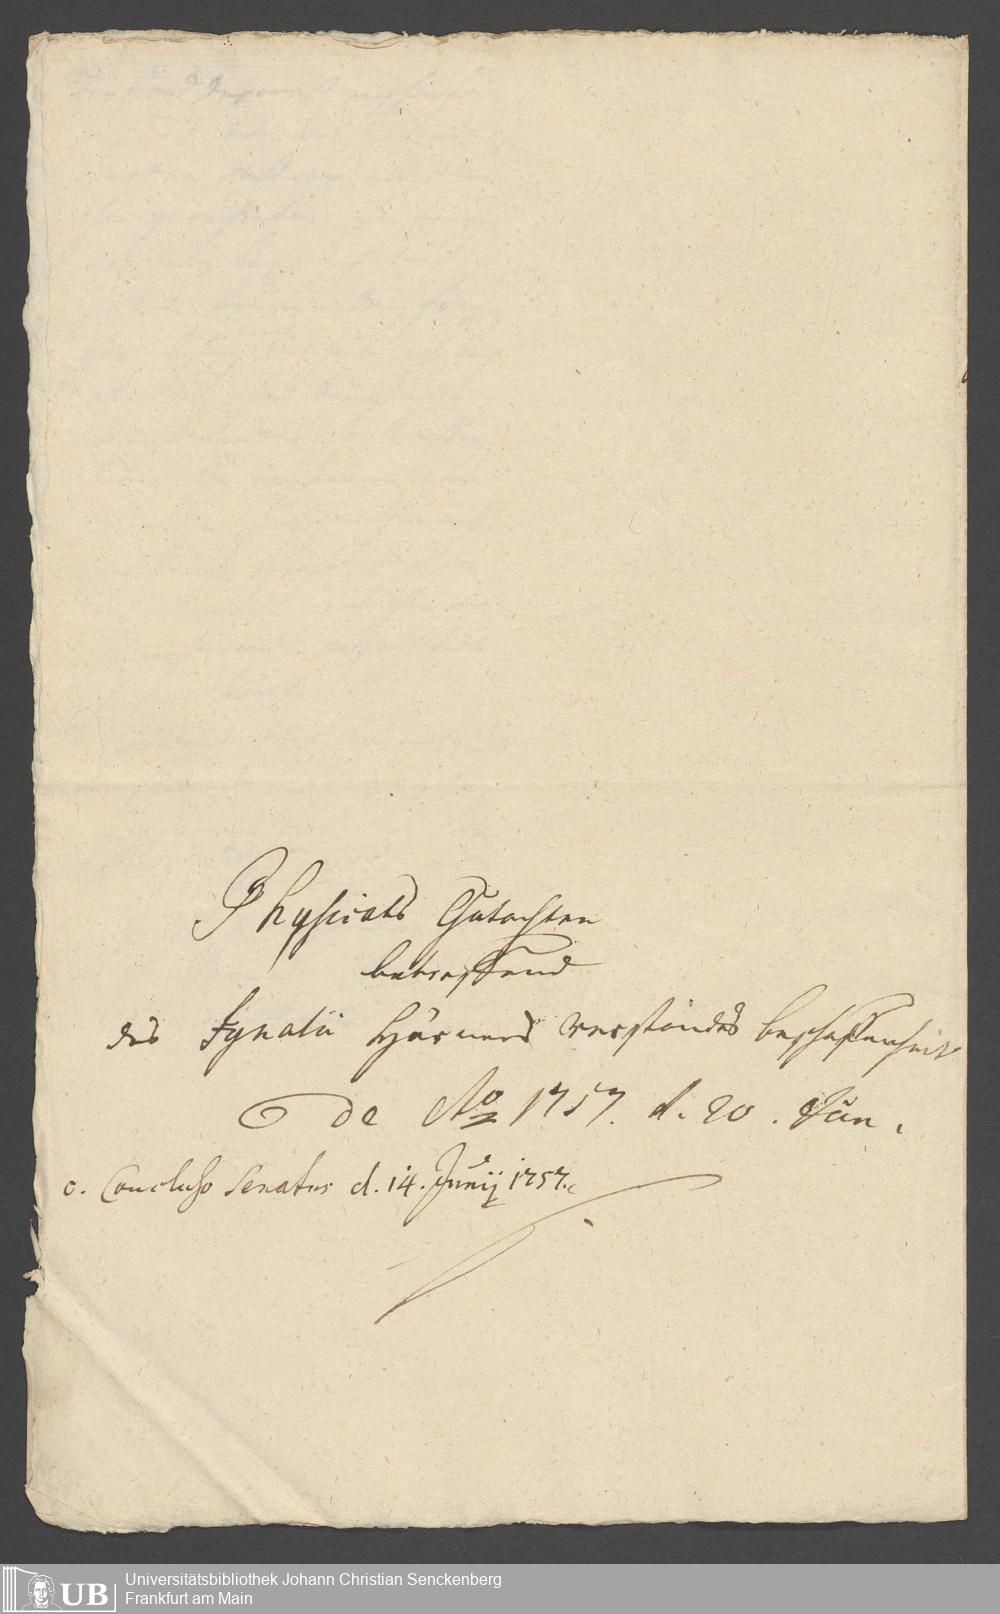 Physicats Gutachten
betreffend
des Ignatii Hörners verstandes beschaffenheit
de Ao 1757. d. 20. Jun.
c. Concluso Senatus d. 14. Junij 1757.
UB Universitätsbibliothek Johann Christian Senckenberg
Frankfurt am Main